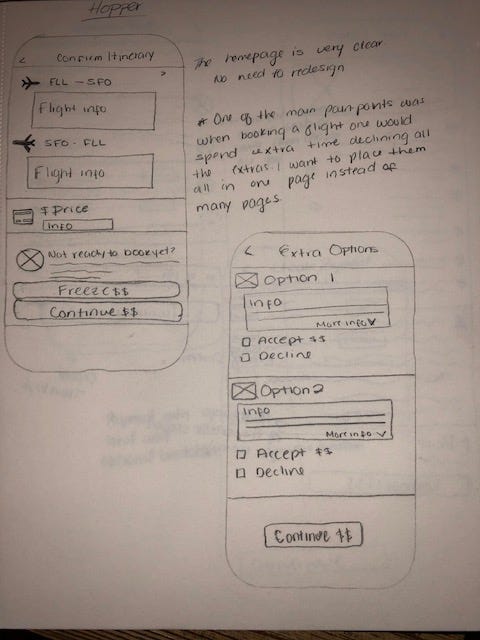 Hopper
< Confirm Itinerary
FLL - SFO >
Flight info
SFO - FLL
Flight info
$ Price
Info
Not ready to book yet?
Freeze $$
Continue $$
The homepage is very clear
No need to redesign
* One of the main pain points was
when booking a flight one would
spend extra time declining all
the extras. I want to place them
all in one page instead of
many pages
< Extra Options
Option 1
Info
More info ∨
Accept $$
Decline
Option 2
Info
More info ∨
Accept $$
Decline
Continue $$